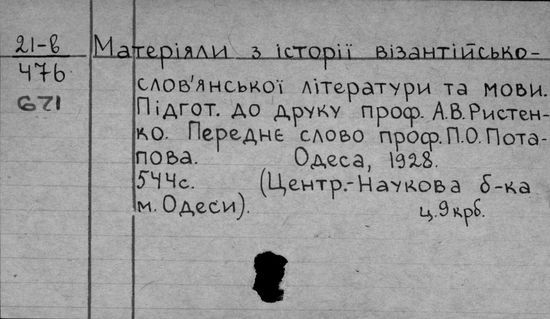 21-в Матеріяли з історії візантійсько-
476 слов'янської літератури та мови.
621 Підгот. до друку проф. А.В. Ристен-
ко. Переднє слово проф. П.О. Пота-
пова. Одеса, 1928.
544с. (Центр.-Наукова б-ка
м. Одеси). ц. 9 крб.